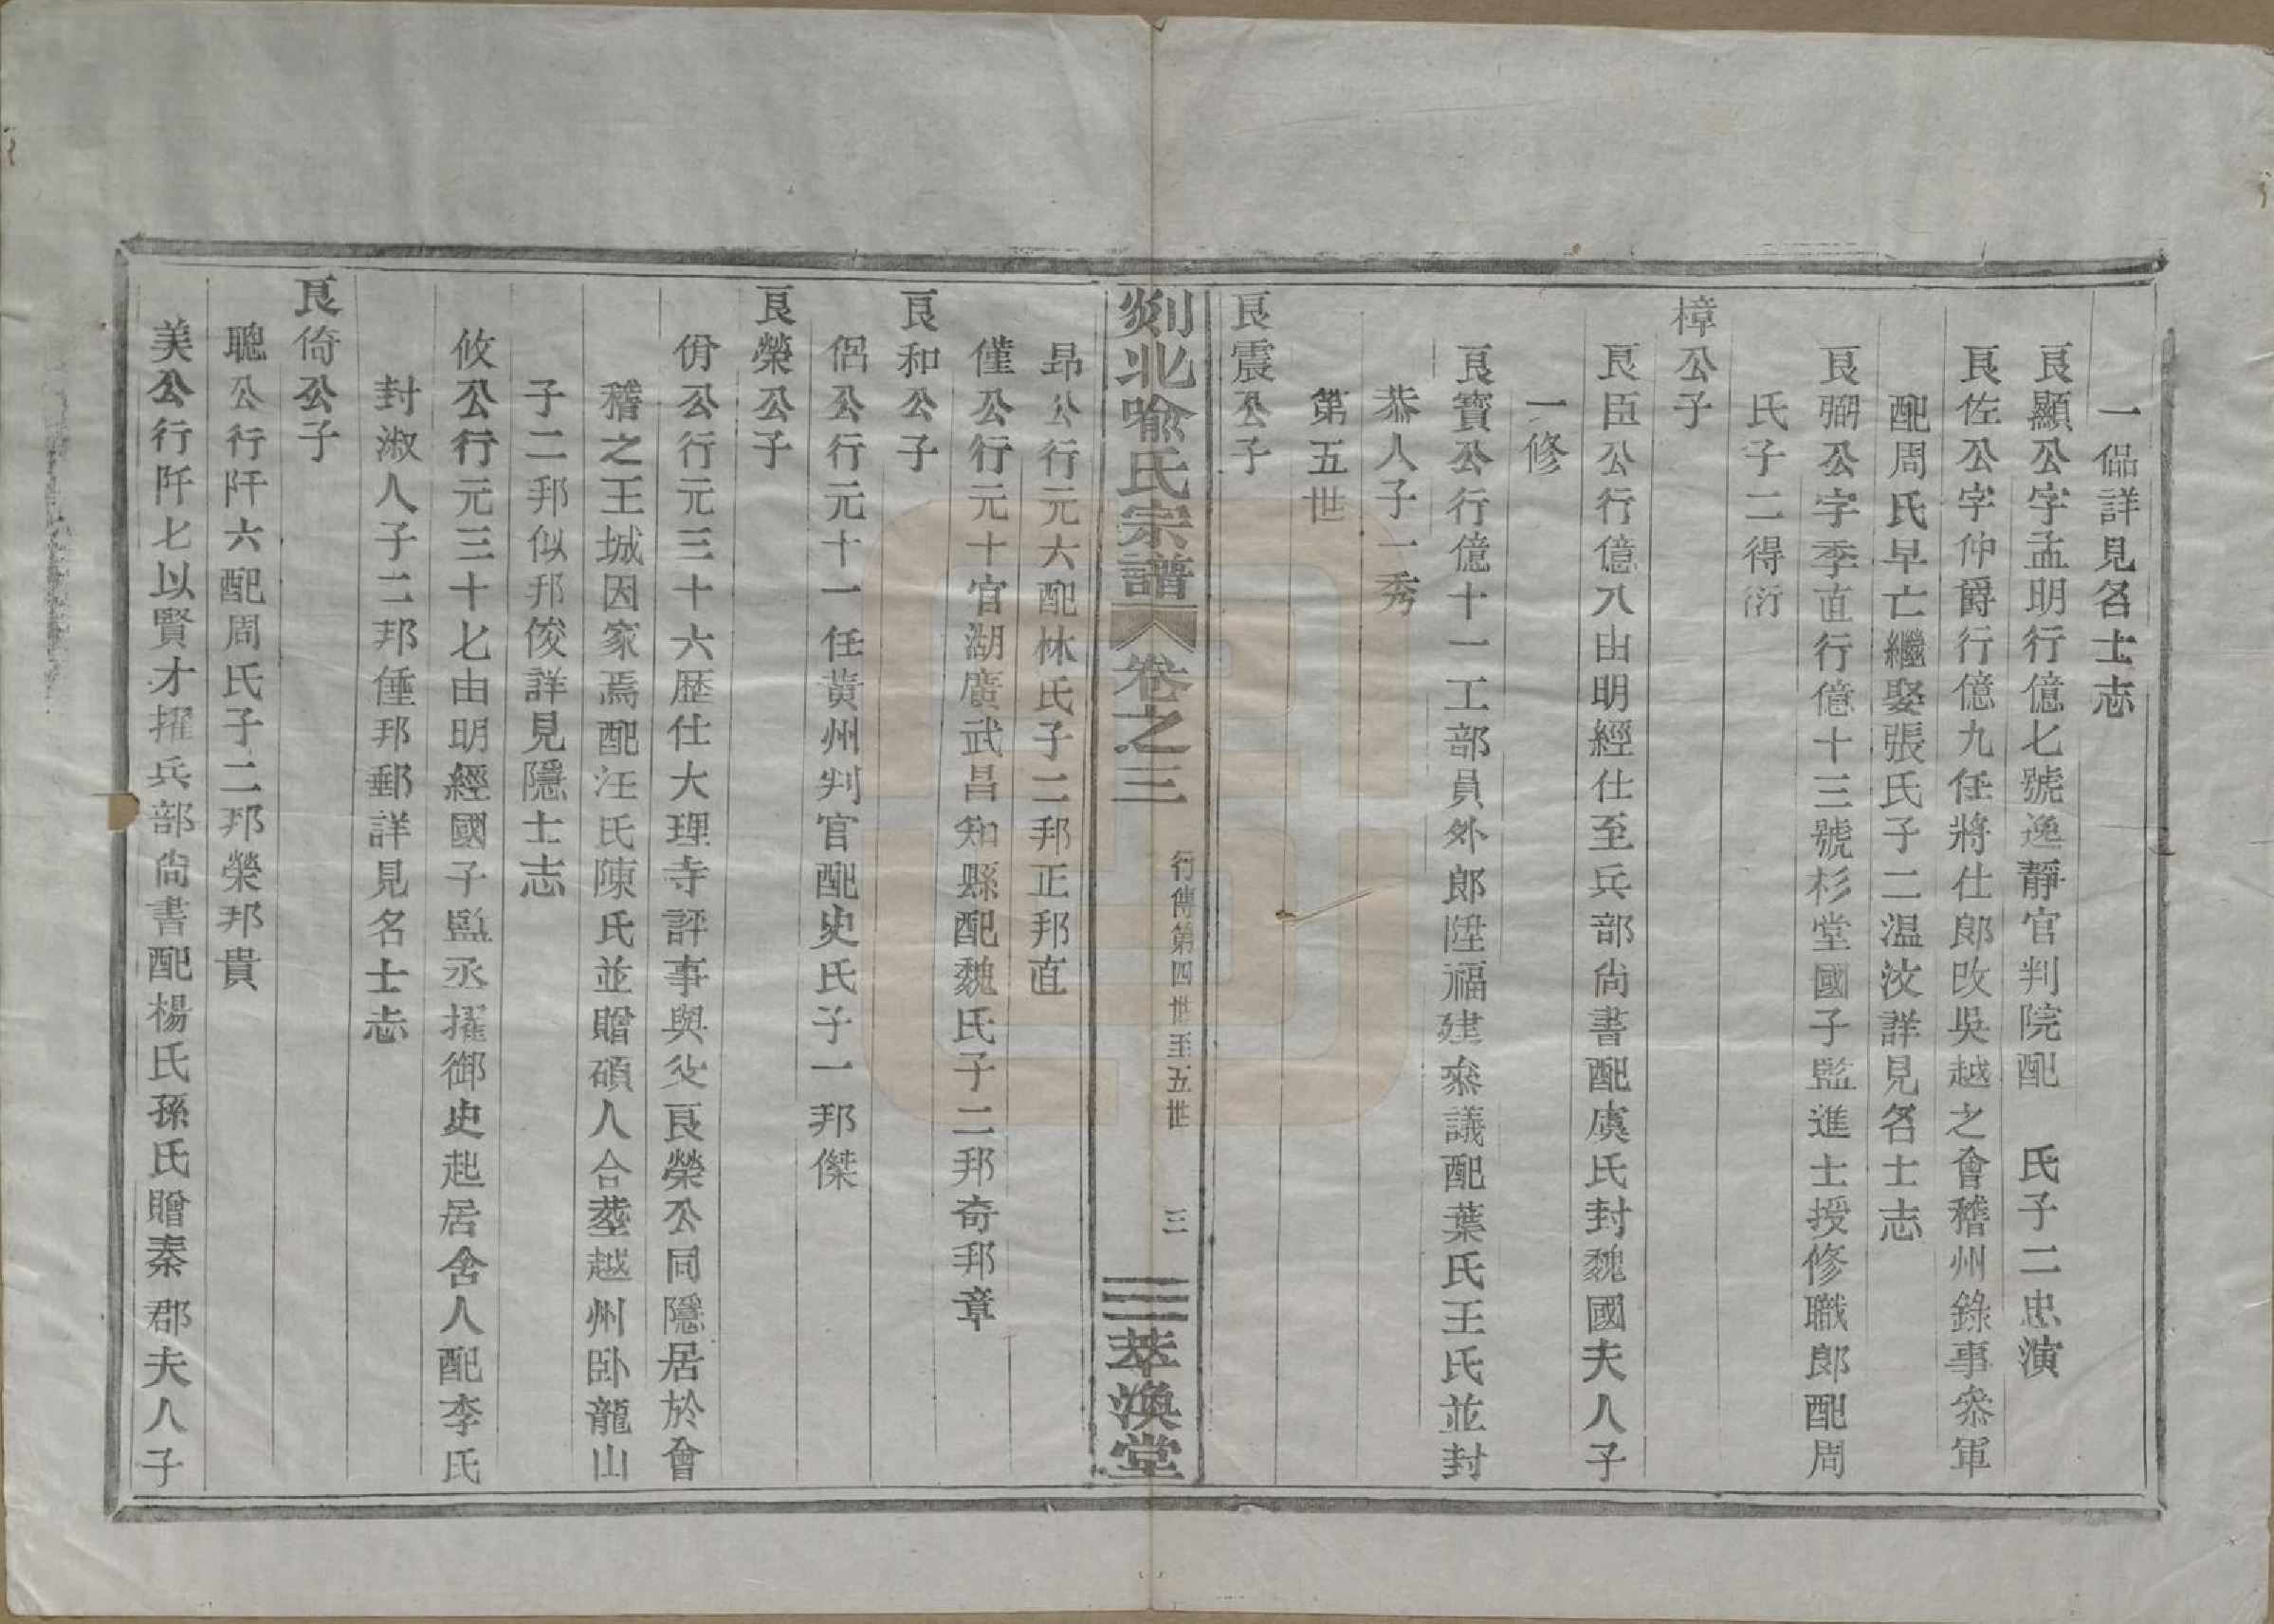 一偘詳見名士志
良顯公字孟明行億七號逸靜官判院配　氏子二忠演
良佐公字仲爵行億九任將仕郎改吳越之會稽州錄事叅軍
配周氏早亡繼娶張氏子二温汶詳見名士志
良弼公字季直行億十三號杉堂國子監進士授修職郎配周
氏子二得衍
樟公子
良臣公行億八由明經仕至兵部尙書配虞氏封魏國夫人子
一修
良寶公行億十一工部員外郎陞福建叅議配葉氏王氏並封
恭人子一秀
第五世
良震公子
剡北喻氏宗譜
卷之三
行傳第四世至五世
三
萃渙堂
昂公行元六配林氏子二邦正邦直
僅公行元十官湖廣武昌知縣配魏氏子二邦奇邦章
良和公子
侶公行元十一任黃州判官配史氏子一邦傑
良榮公子
佾公行元三十六歷仕大理寺評事與父良榮公同隱居於會
稽之王城因家焉配汪氏陳氏並贈碩人合塟越州卧龍山
子二邦似邦俊詳見隱士志
攸公行元三十七由明經國子監丞擢御史起居舍人配李氏
封淑人子二邦倕邦郵詳見名士志
良倚公子
聰公行阡六配周氏子二邦榮邦貴
美公行阡七以賢才擢兵部尙書配楊氏孫氏贈秦郡夫人子